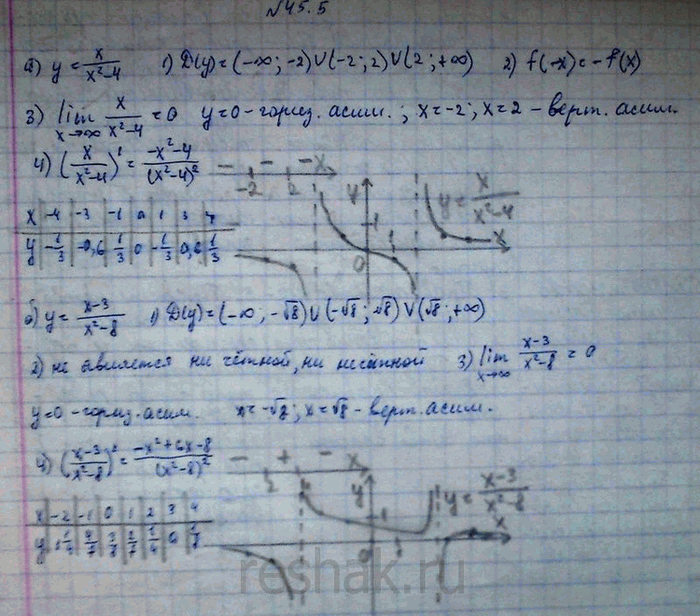 №45.5
а) y = x/(x²-4) 1) D(y)=(-∞;-2)∪(-2;2)∪(2;+∞) 2) f(-x)=-f(x)
3) lim x→∞ x/(x²-4) = 0 y=0 - гориз. асим.; x=-2; x=2 - верт. асим.
4) (x/(x²-4))' = (-x²-4)/(x²-4)² - - - x
-2 2
y y = x/(x²-4)
x -4 -3 -1 0 1 3 4
y -1/3 -0,6 1/3 0 -1/3 0,6 1/3
1 0 1 x
б) y = (x-3)/(x²-8) 1) D(y)=(-∞,-√8)∪(-√8;√8)∪(√8;+∞)
2) не является ни чётной, ни нечётной 3) lim x→∞ (x-3)/(x²-8) = 0
y=0 - гориз. асим. x=-√8; x=√8 - верт. асим.
4) (x-3/(x²-8))' = (-x²+6x-8)/(x²-8)² - + - x
y y = (x-3)/(x²-8)
x -2 -1 0 1 2 3 4
y 4/7 3/8 2/7 1/4 0 1/8
1 0 x
reshak.ru